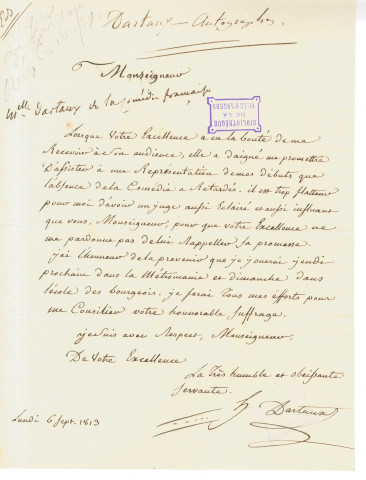 Dartaux - Autographes.
Monseigneur
Melle Dartaux de la Comédie française
BIBLIOTHÈQUE
DE LA
VILLE D'ANGERS
Lorsque Votre Excellence a eu la bonté de me
Recevoir à son audience, elle a daigné me promettre
D'assister à une Représentation de mes débuts que
l'absence de la Comédie a Retardés. il est trop flatteur
pour moi d'avoir un juge aussi Eclairé et aussi influant
que vous, Monseigneur, pour que votre Excellence ne
me pardonne pas de lui Rappeller sa promesse.
j'ai l'honneur de la prevenir que je jouerai jeudi
prochain dans la Métromanie et dimanche dans
l'école des bourgeois. je ferai Tous mes efforts pour
me Concilier votre honorable suffrage.
je suis avec Respect, Monseigneur,
De Votre Excellence
La Très humble et obéissante
servante.
Dartaux
Lundi 6 Sept. 1813